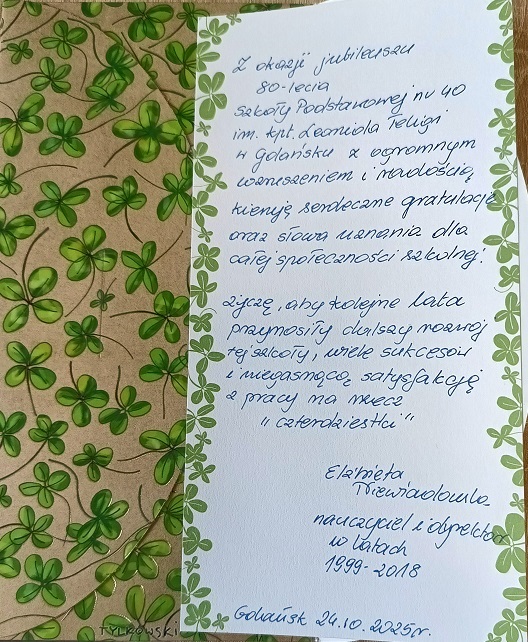 Z okazji jubileuszu
80-lecia
Szkoły Podstawowej nr 40
im. kpt. Leonida Teligi
w Gdańsku z ogromnym
wzruszeniem i radością
kieruję serdeczne gratulacje
oraz słowa uznania dla
całej społeczności szkolnej.
Życzę, aby kolejne lata
przynosiły dalszy rozwój
tej szkoły, wiele sukcesów
i niegasnącą satysfakcję
z pracy na rzecz
"czterdziestki"
Elżbieta
Niewiadomska
nauczyciel i dyrektor
w latach
1999-2018
Gdańsk 24.10.2025r.
TYLKOWSKI